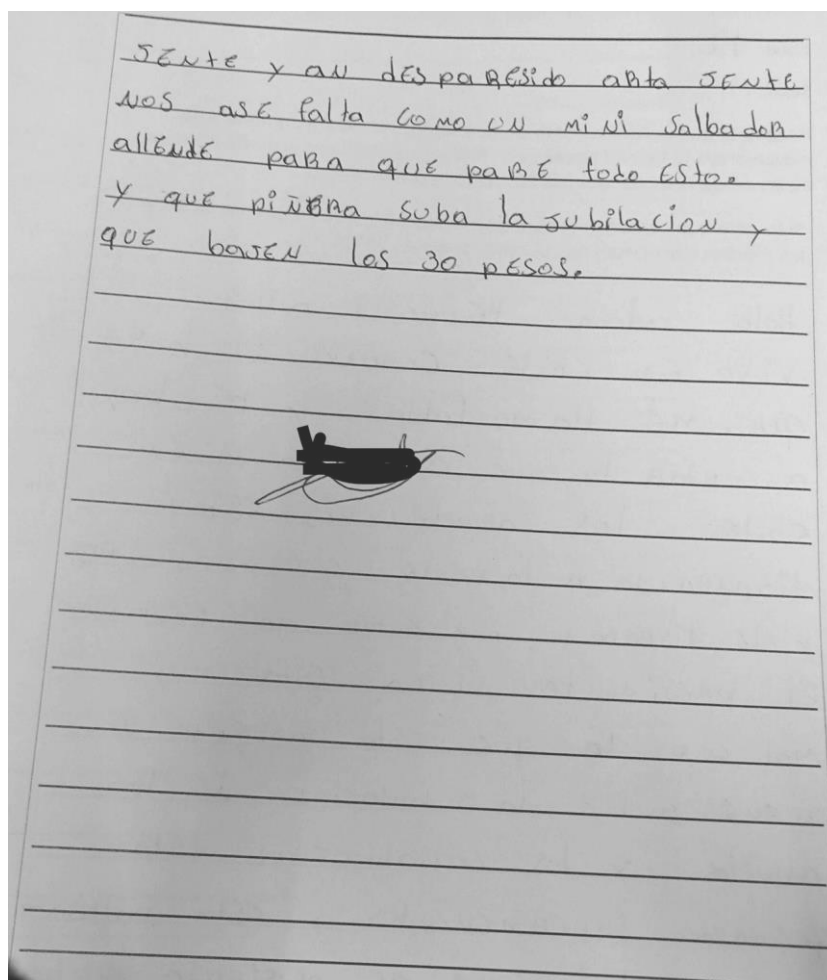 JENtE y aN dESpaRESido aRta JENtE
NOS asE falta COMO UN MiNi SalbadoR
allENdE paRa qUE paRE todo ESto.
y qUE piÑERa suba la JUbilaCioN y
qUE baJEN los 30 pESOS.